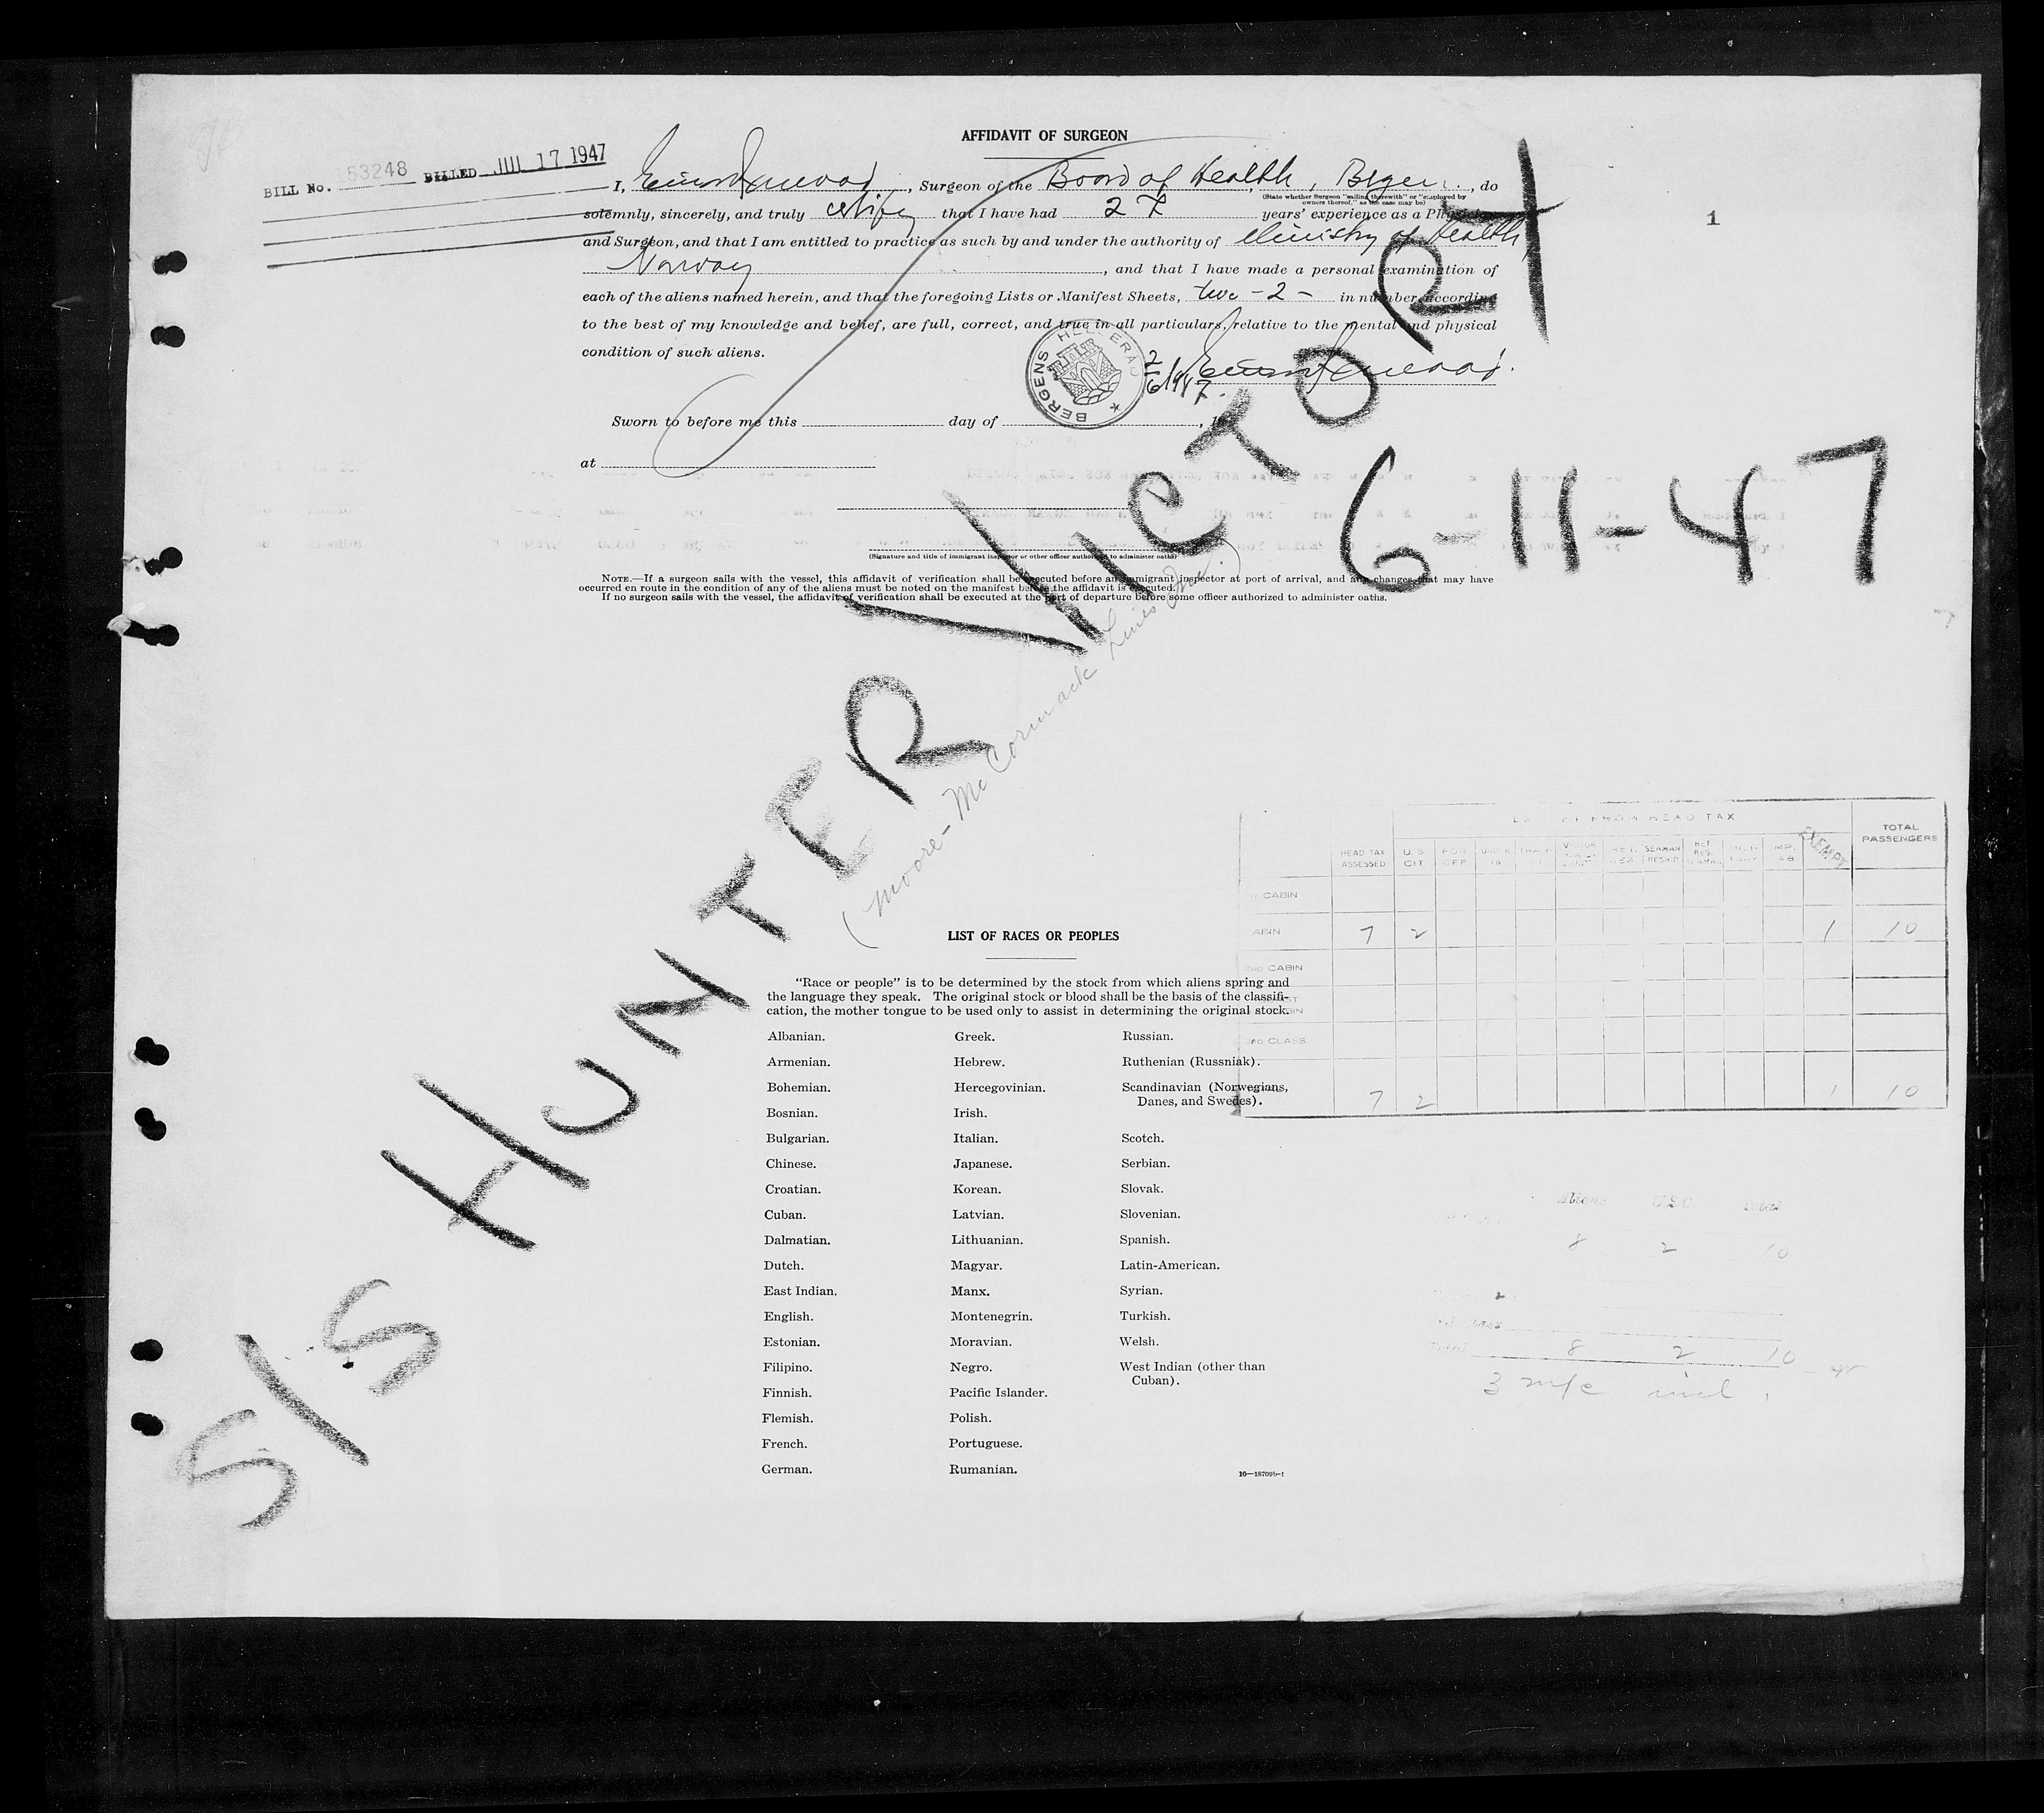 AFFIDAVIT OF SURGEON
BILL No. 153248 BILLED JUL 17 1947
I, , Surgeon of the Board of Health, Bergen, do
(State whether Surgeon "sailing therewith" or "employed by
owners thereof," as the case may be)
solemnly, sincerely, and truly certify that I have had 27 years' experience as a Physician
and Surgeon, and that I am entitled to practice as such by and under the authority of Ministry of Health
Norway , and that I have made a personal examination of
each of the aliens named herein, and that the foregoing Lists or Manifest Sheets, two - 2 - in number, according
to the best of my knowledge and belief, are full, correct, and true in all particulars, relative to the mental and physical
condition of such aliens.
BERGENS HELSERÅD
2/6 1947.
Sworn to before me this day of , 19
at
(Signature and title of immigrant inspector or other officer authorized to administer oaths)
NOTE.—If a surgeon sails with the vessel, this affidavit of verification shall be executed before an immigrant inspector at port of arrival, and any changes that may have
occurred en route in the condition of any of the aliens must be noted on the manifest before the affidavit is executed.
If no surgeon sails with the vessel, the affidavit of verification shall be executed at the port of departure before some officer authorized to administer oaths.
1
S/S HUNTER VICTORY
6-11-47
(Moore-McCormack Lines Inc.)
EXEMPT FROM HEAD TAX
HEAD TAX ASSESSED U.S. CIT. FOR OFF. SEAMAN RESHIP EXEMPT TOTAL PASSENGERS
CABIN
CABIN 7 2 1 10
2ND CABIN
3RD CLASS
7 2 1 10
LIST OF RACES OR PEOPLES
"Race or people" is to be determined by the stock from which aliens spring and
the language they speak. The original stock or blood shall be the basis of the classifi-
cation, the mother tongue to be used only to assist in determining the original stock.
Albanian.
Armenian.
Bohemian.
Bosnian.
Bulgarian.
Chinese.
Croatian.
Cuban.
Dalmatian.
Dutch.
East Indian.
English.
Estonian.
Filipino.
Finnish.
Flemish.
French.
German.
Greek.
Hebrew.
Hercegovinian.
Irish.
Italian.
Japanese.
Korean.
Latvian.
Lithuanian.
Magyar.
Manx.
Montenegrin.
Moravian.
Negro.
Pacific Islander.
Polish.
Portuguese.
Rumanian.
Russian.
Ruthenian (Russniak).
Scandinavian (Norwegians,
Danes, and Swedes).
Scotch.
Serbian.
Slovak.
Slovenian.
Spanish.
Latin-American.
Syrian.
Turkish.
Welsh.
West Indian (other than
Cuban).
16—18700b-1
Aliens U.S.C. Total
8 2 10
Total 8 2 10
3 m/c incl.